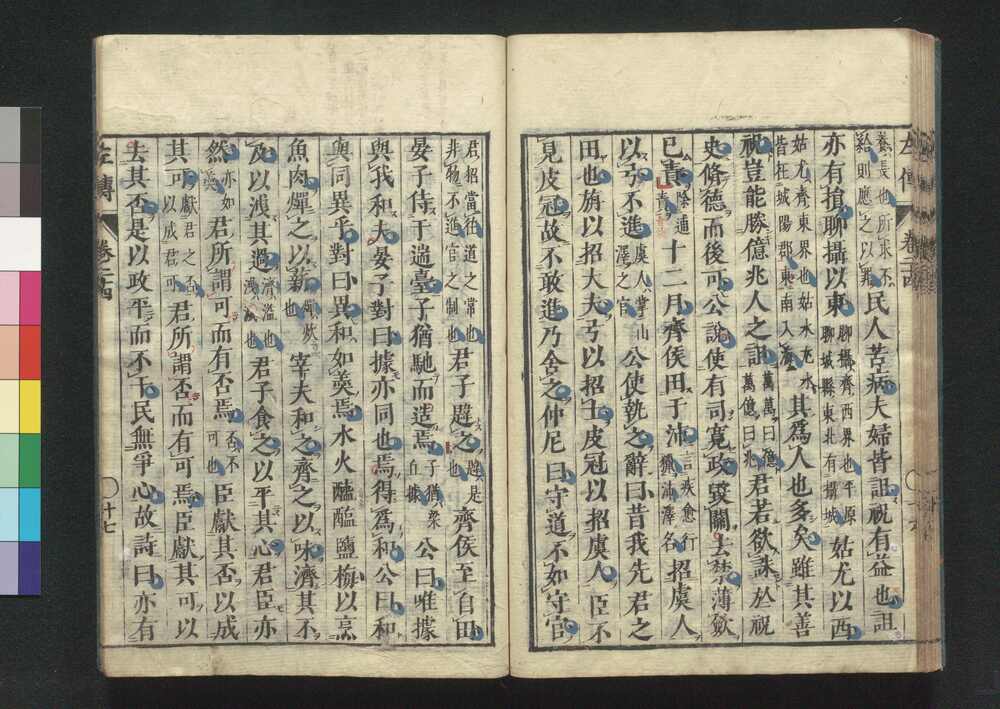 養長也所求不
給則應之以罪民人苦病夫婦皆詛祝有益也詛
亦有損聊攝以東聊攝齊西界也平原聊城縣東北有攝城姑尤以西
姑尤齊東界也姑水尤水皆在城陽郡東南入海其爲人也多矣雖其善
祝豈能勝億兆人之詛萬萬曰億萬億曰兆君若欲誅於祝
史脩德而後可公說使有司寬政毀關去禁薄斂
已責除逋責十二月齊侯田于沛言疾愈行獵沛澤名招虞人
以弓不進虞人掌山澤之官公使執之辭曰昔我先君之
田也旃以招大夫弓以招士皮冠以招虞人臣不
見皮冠故不敢進乃舍之仲尼曰守道不如守官
君招當往道之常也非物不進官之制也君子韙之韙是也齊侯至自田
晏子侍于遄臺子猶馳而造焉子猶梁丘據公曰唯據
與我和夫晏子對曰據亦同也焉得爲和公曰和
與同異乎對曰異和如羹焉水火醯醢鹽梅以烹
魚肉燀之以薪燀炊也宰夫和之齊之以味濟其不
及以洩其過濟益也洩減也君子食之以平其心君臣亦
然亦如羹君所謂可而有否焉否不可也臣獻其否以成
其可獻君之否以成君可君所謂否而有可焉臣獻其可以
去其否是以政平而不干民無爭心故詩曰亦有
左傳
卷二十四
十七